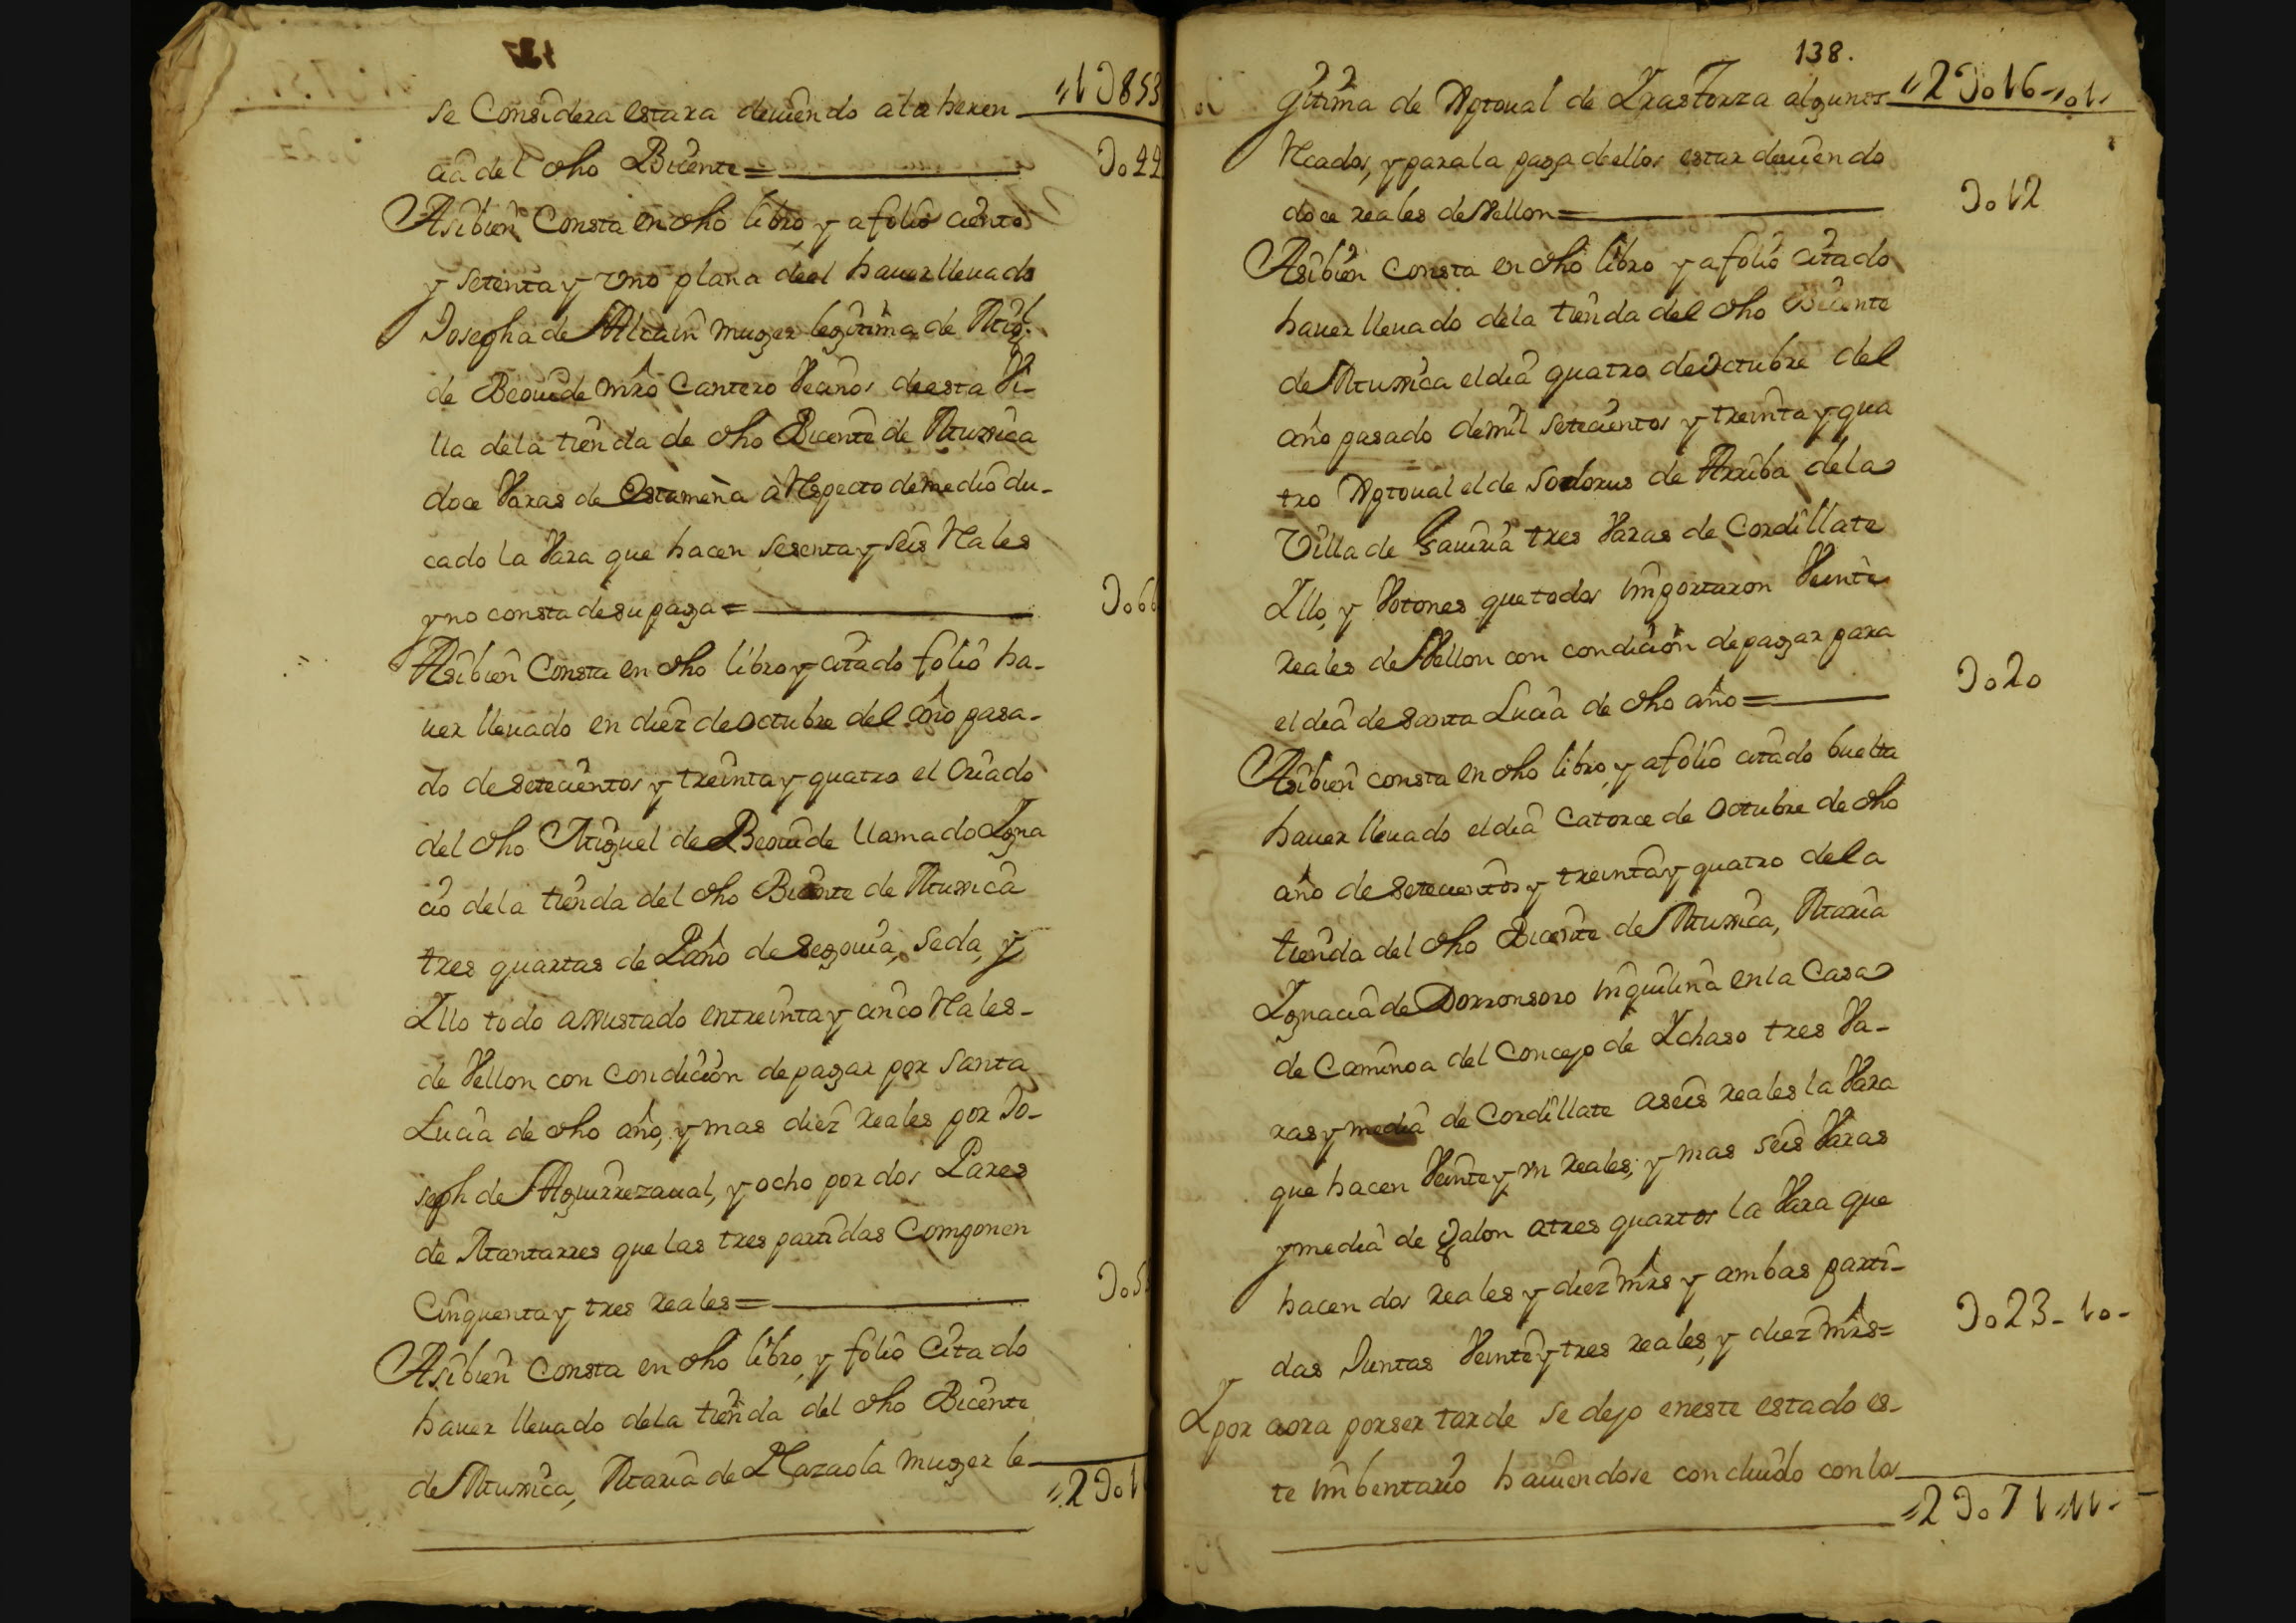 se Considera estara deuiendo a la heren-
cia del dho Bicente=
Asibien Consta en dho libro, y a folio ciento
y setenta y uno plana deel hauer lleuado
Josepha de Alcain muger legitima de Migl
de Beouide mro Cantero Vecinos de esta Vi-
lla de la tienda de dho Bicente de Mussica
doce Varas de Estameña a Respecto de medio du-
cado la Vara que hacen sesenta y seis Reales
y no consta de su paga=
Asibien Consta en dho libro y citado folio ha-
uer lleuado en diez de octubre del año pasa-
do de setecientos y treinta y quatro el Criado
del dho Miguel de Beouide llamado Igna
cio de la tienda del dho Bicente de Mussica
tres quartas de Paño de Segouia, Seda, y
Illo todo ajustado en treinta y cinco Reales-
de Vellon con condicion de pagar por Santa
Lucia de dho año, y mas diez Reales por Jo-
seph de Aguirrezaual, y ocho por dos Pares
de Mantarres que las tres partidas Componen
Cinquenta y tres reales=
Asibien Consta en dho libro, y folio Citado
hauer lleuado de la tienda del dho Bicente
de Mussica, Maria de Mazaola muger le-
"1U853
Uo44
Uo66
"2Uo1
138.
gitima de Xptoual de Irastorza algunos
Rcados, y para la paga de ellos estar deuiendo
doce reales de Vellon=
Asibien Consta en dho libro y a folio citado
hauer lleuado de la tienda del dho Bicente
de Mussica el dia quatro de octubre del
año pasado de mil setecientos y treinta y qua
tro Xptoual el de Sodorus de Arriba de la
Villa de Gauiria tres Varas de Cordillate
Illo, y Votones que todos importaron Veinte
Reales de Vellon con condicion de pagar para
el dia de Santa Lucia de dho año=
Asibien consta en dho libro, y a folio citado buelta
hauer lleuado el dia Catorce de octubre de dho
año de setecientos y treinta y quatro de la
tienda del dho Bicente de Mussica, Maria
Ignacia de Dorronsoro inquilina en la Casa
de Caminoa del Concejo de Ichaso tres Va-
ras y media de Cordillate a seis reales la Vara
que hacen Veinte y un Reales; y mas seis Varas
y media de Galon a tres quartos la Vara que
hacen dos reales y diez mrs y ambas parti-
das Juntas Veinte y tres reales, y diez mrs=
I por aora por ser tarde se dejo en este estado es-
te imbentario hauiendose concluido con los
"2Uo16-"o1"
Uo12
Uo2o
Uo23-1o-
"2Uo71"11-